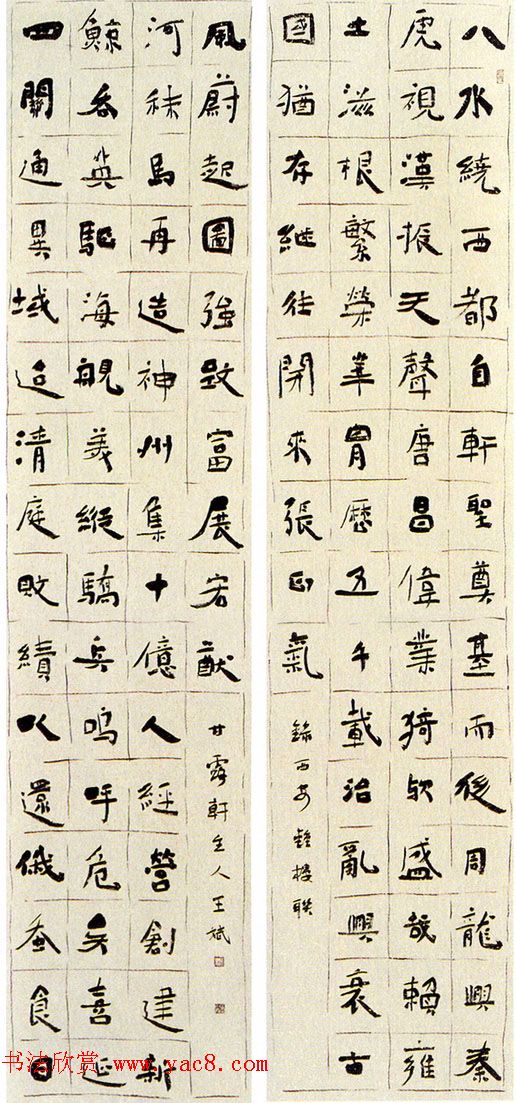 八水繞西都自軒聖奠基而後周龍興秦
虎視漢振天聲唐昌偉業猗歟盛哉賴雍
土滋根繁榮華胄歷五千載治亂興衰古
國猶存繼往開來張正氣
錄西安鐘樓聯
四關通異域迨清庭敗績以還俄蚕食日
鯨吞英駈海艦美縱驕兵嗚呼危矣喜延
河秣馬再造神州集十億人經營創建新
風蔚起圖強致富展宏猷
甘露軒主人王斌
书法欣赏 www.yac8.com